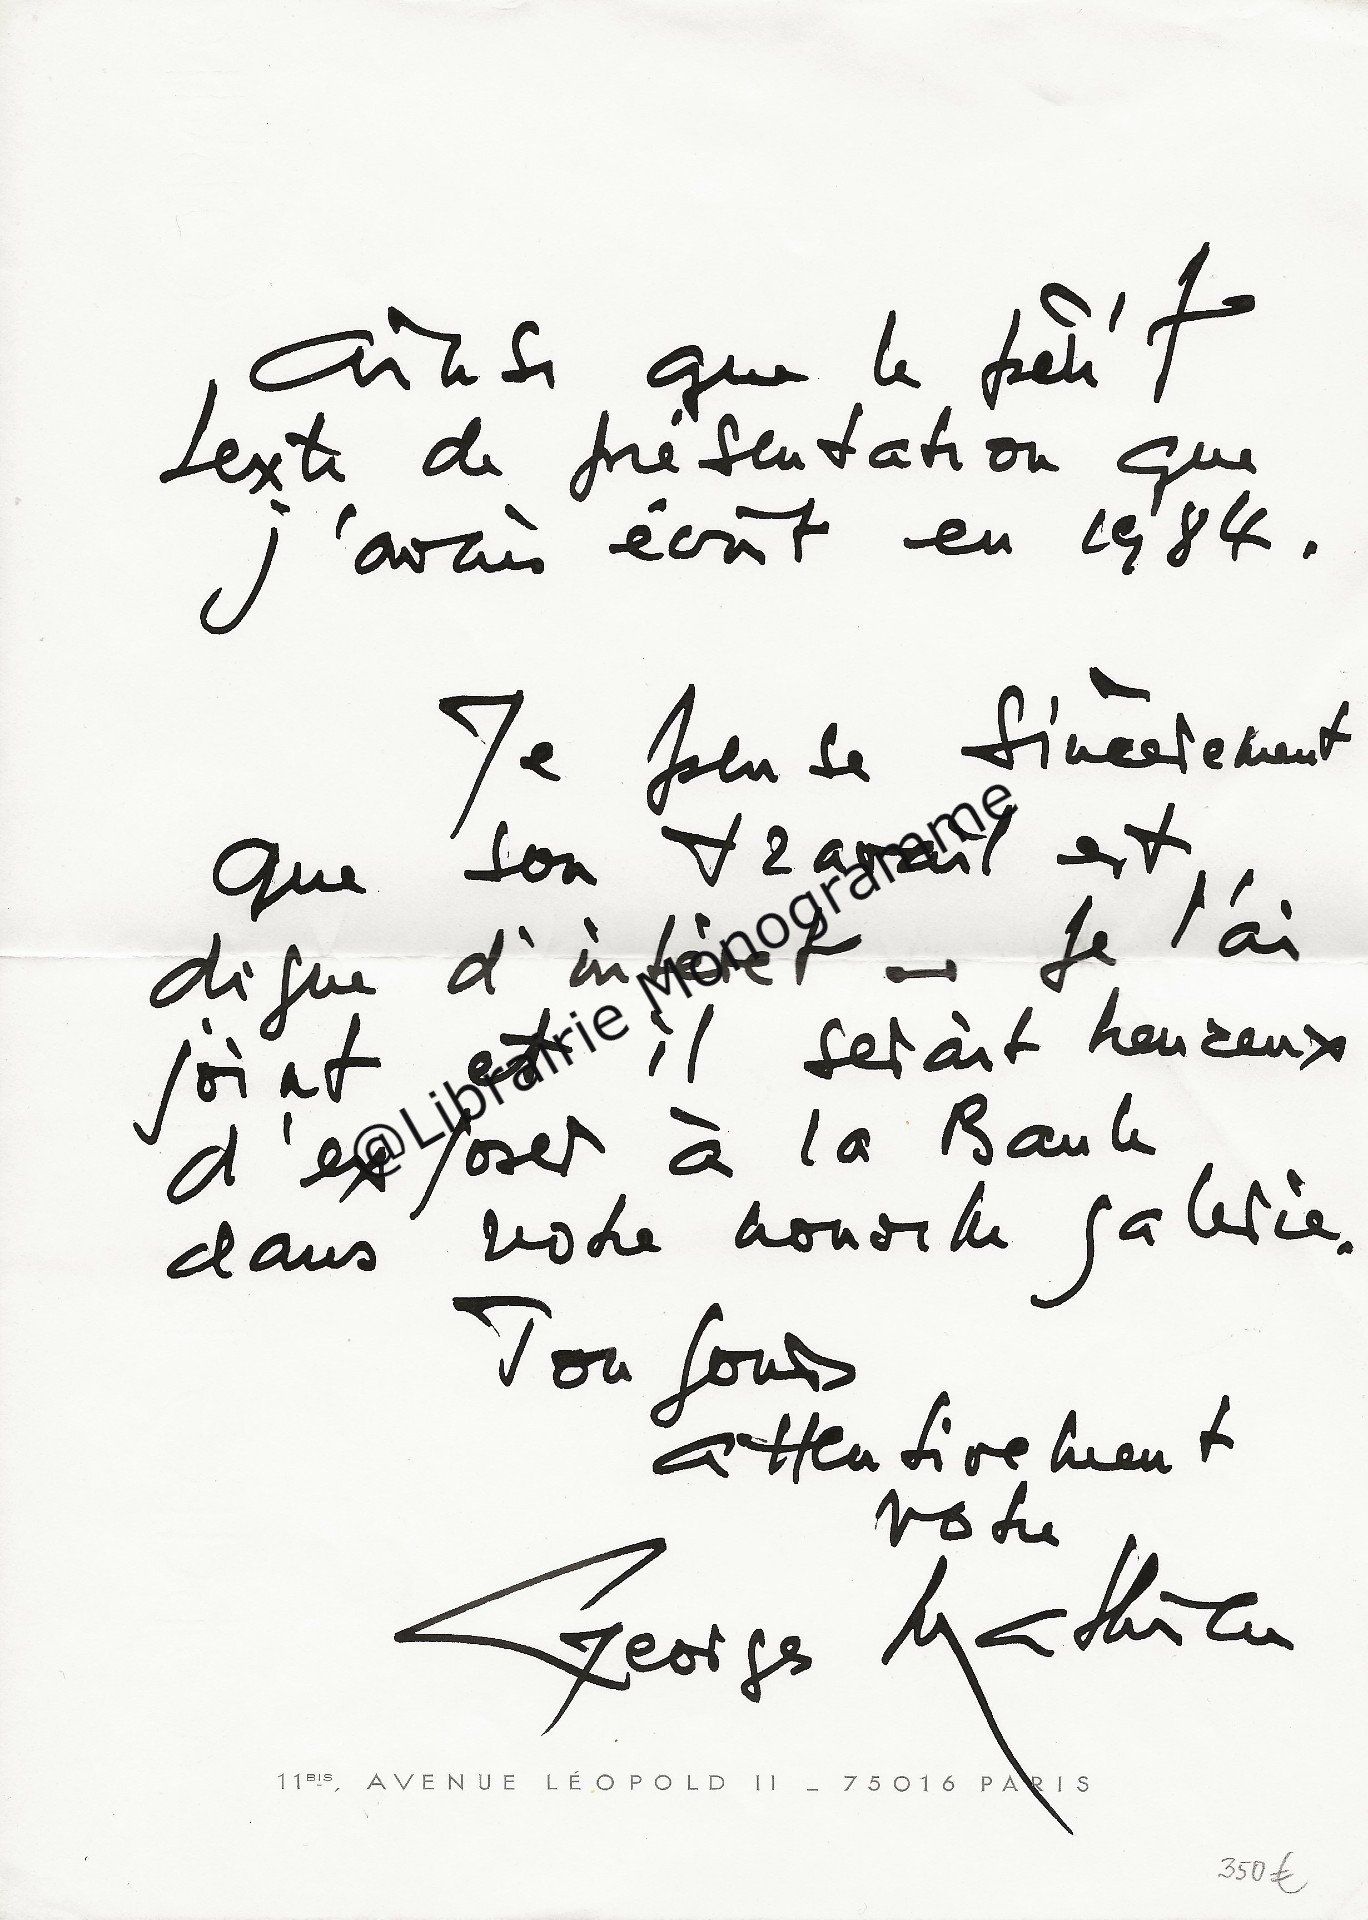 Ainsi que le petit
texte de présentation que
j'avais écrit en 1984.
Je pense sincèrement
que son travail est
digne d'intérêt — Je l'ai
joint et il serait heureux
d'exposer à la Baule
dans votre nouvelle galerie.
Toujours
attentivement
votre
Georges Mathieu
@Librairie Monogramme
11BIS, AVENUE LÉOPOLD II — 75016 PARIS
350 €